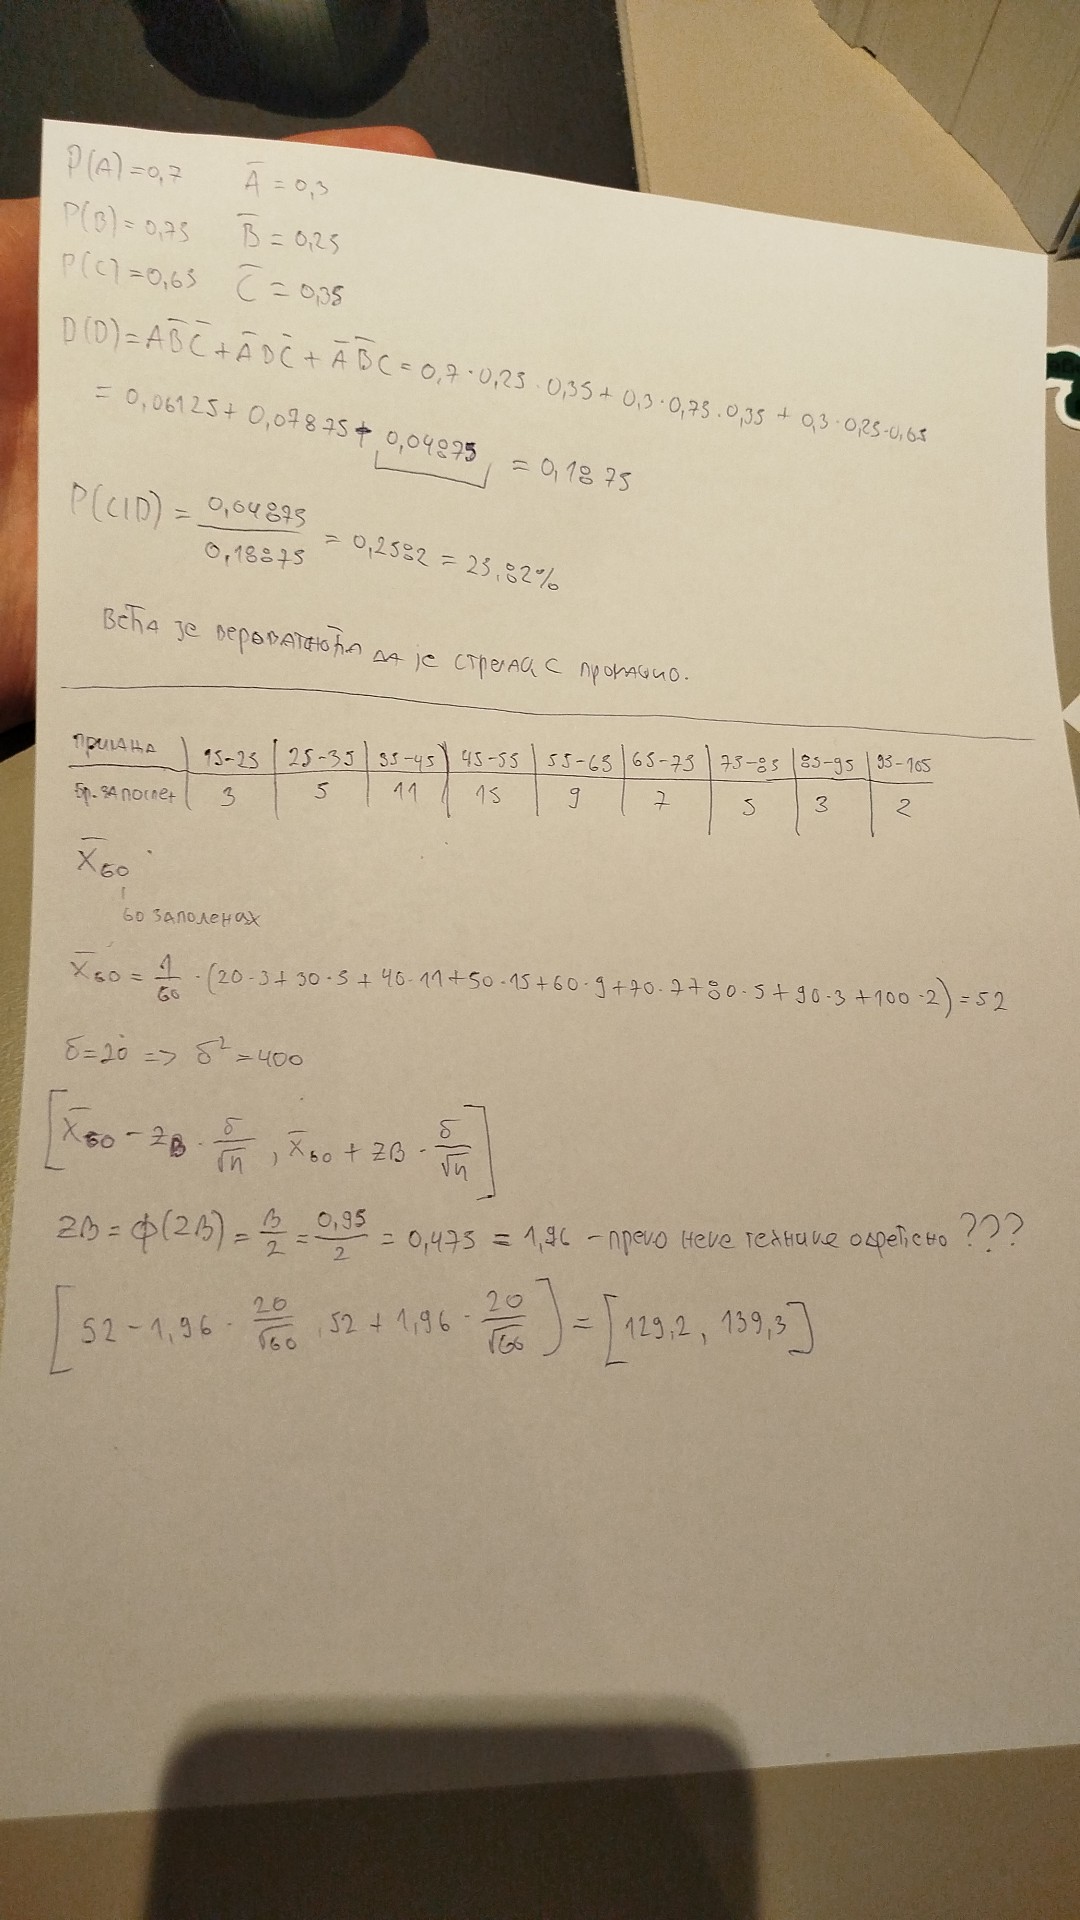 P(A)=0,7 Ā = 0,3
P(B)=0,75 B̄ = 0,25
P(C)=0,65 C̄ = 0,35
D(D)=AB̄C̄ + ĀBC̄ + ĀB̄C = 0,7·0,25·0,35 + 0,3·0,75·0,35 + 0,3·0,25·0,65
= 0,06125 + 0,07875 + 0,04875 = 0,1875
P(C|D) = 0,04875 / 0,18875 = 0,2582 = 25,82%
Већа је вероватноћа да је стрелац C промашио.
15-25 | 25-35 | 35-45 | 45-55 | 55-65 | 65-75 | 75-85 | 85-95 | 95-105
бр. запослен | 3 | 5 | 11 | 15 | 9 | 7 | 5 | 3 | 2
X̄60
60 заполенах
X̄60 = 1/60 · (20·3+30·5+40·11+50·15+60·9+70·7+80·5+90·3+100·2) = 52
δ=20 => δ²=400
[X̄60 - zB · δ/√n, X̄60 + zB · δ/√n]
zB = φ(zB) = B/2 = 0,95/2 = 0,475 = 1,96 - преко неке технике одређено ???
[52 - 1,96 · 20/√60, 52 + 1,96 · 20/√60] = [129,2, 139,3]